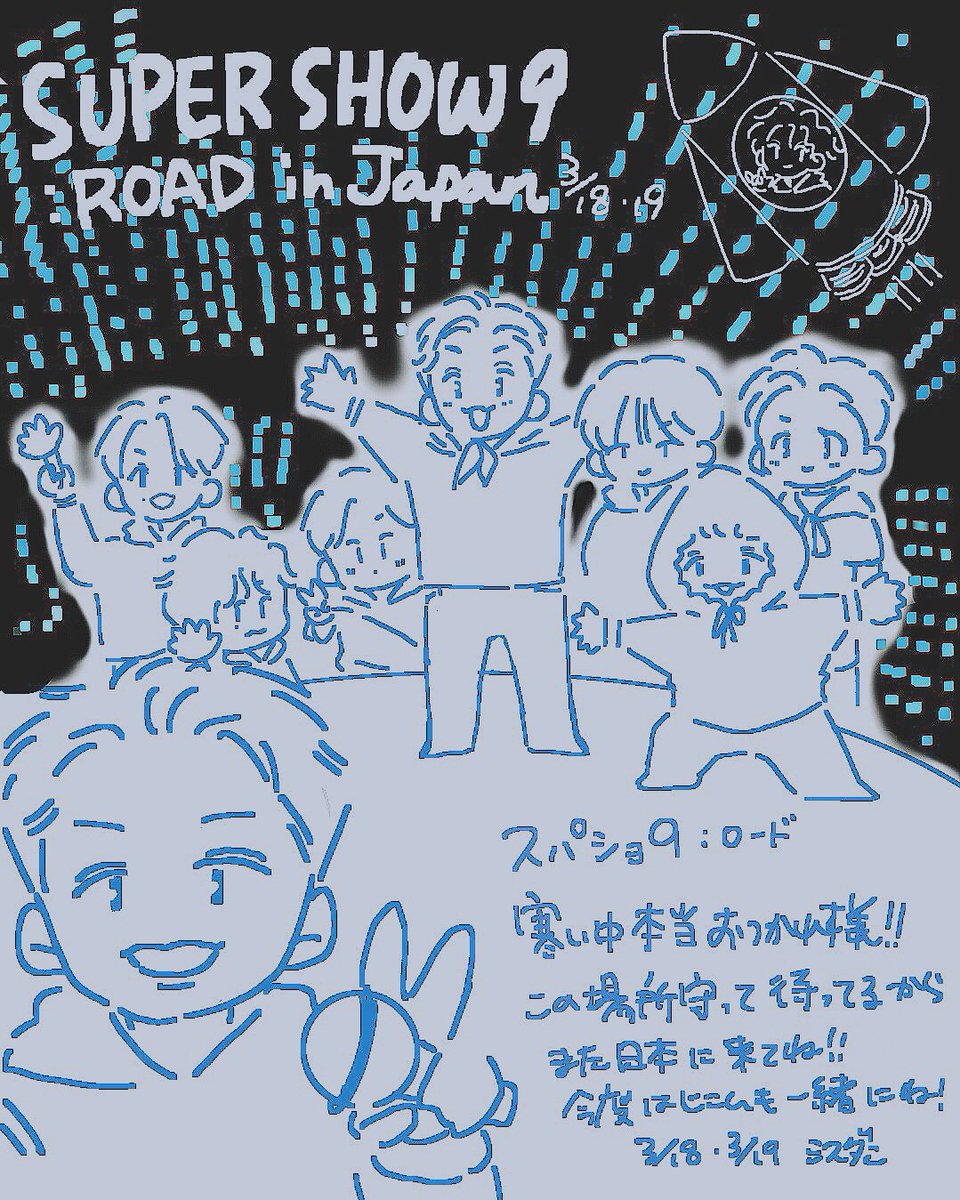 SUPER SHOW 9
: ROAD in Japan 3/18・19
スパショ9：ロード
寒い中本当おつかれ様!!
この場所守って待ってるから
また日本に来てね!!
今度はじにむも一緒にね!
3/18・3/19 ミスダニ